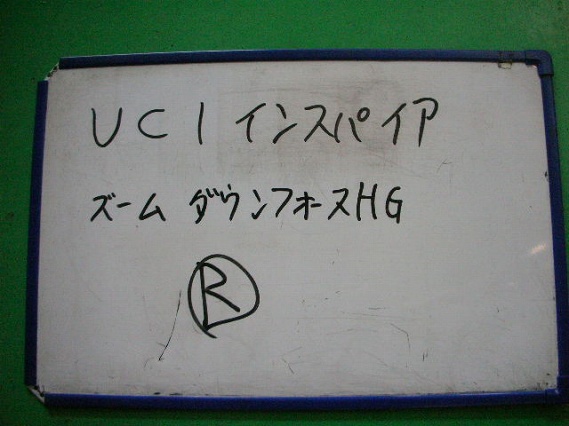 UC1 インスパイア
ズーム ダウンフォースHG
R